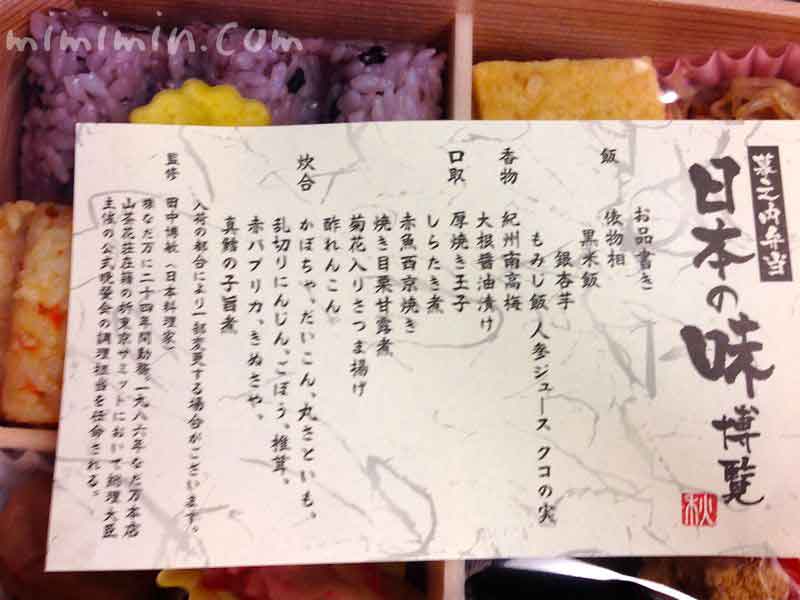 mimimin.com
幕之内弁当
日本の味 博覧
秋
お品書き
飯 俵物相
黒米飯
銀杏芋
もみじ飯 人参ジュース クコの実
香物 紀州南高梅
大根醤油漬け
口取 厚焼き玉子
しらたき煮
赤魚西京焼き
焼き目栗甘露煮
菊花入りさつま揚げ
酢れんこん
炊合 かぼちゃ、だいこん、丸さといも、
乱切りにんじん、ごぼう、椎茸、
赤パプリカ、きぬさや、
真鱈の子旨煮
入荷の都合により一部変更する場合がございます。
監修 田中博敏（日本料理家）
(株)なだ万に二十四年間勤務。一九八六年なだ万本店
山茶花荘在籍の折東京サミットにおいて総理大臣
主催の公式晩餐会の調理担当を任命される。